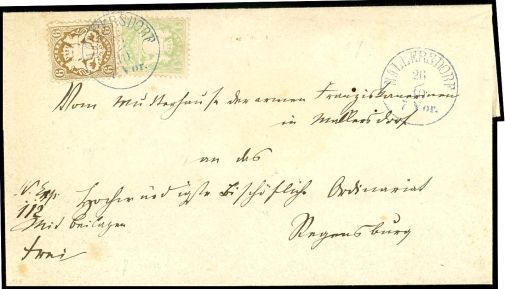 MALLERSDORF
26
7 Vor.
Vom Mutterhause der armen Franziskanerinnen
in Mallersdorf
an das
Hochwürdigste Bischöfliche Ordinariat
Regensburg
112
Mit Beilagen
frei